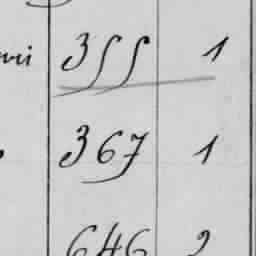 355 1
367 1
646 2